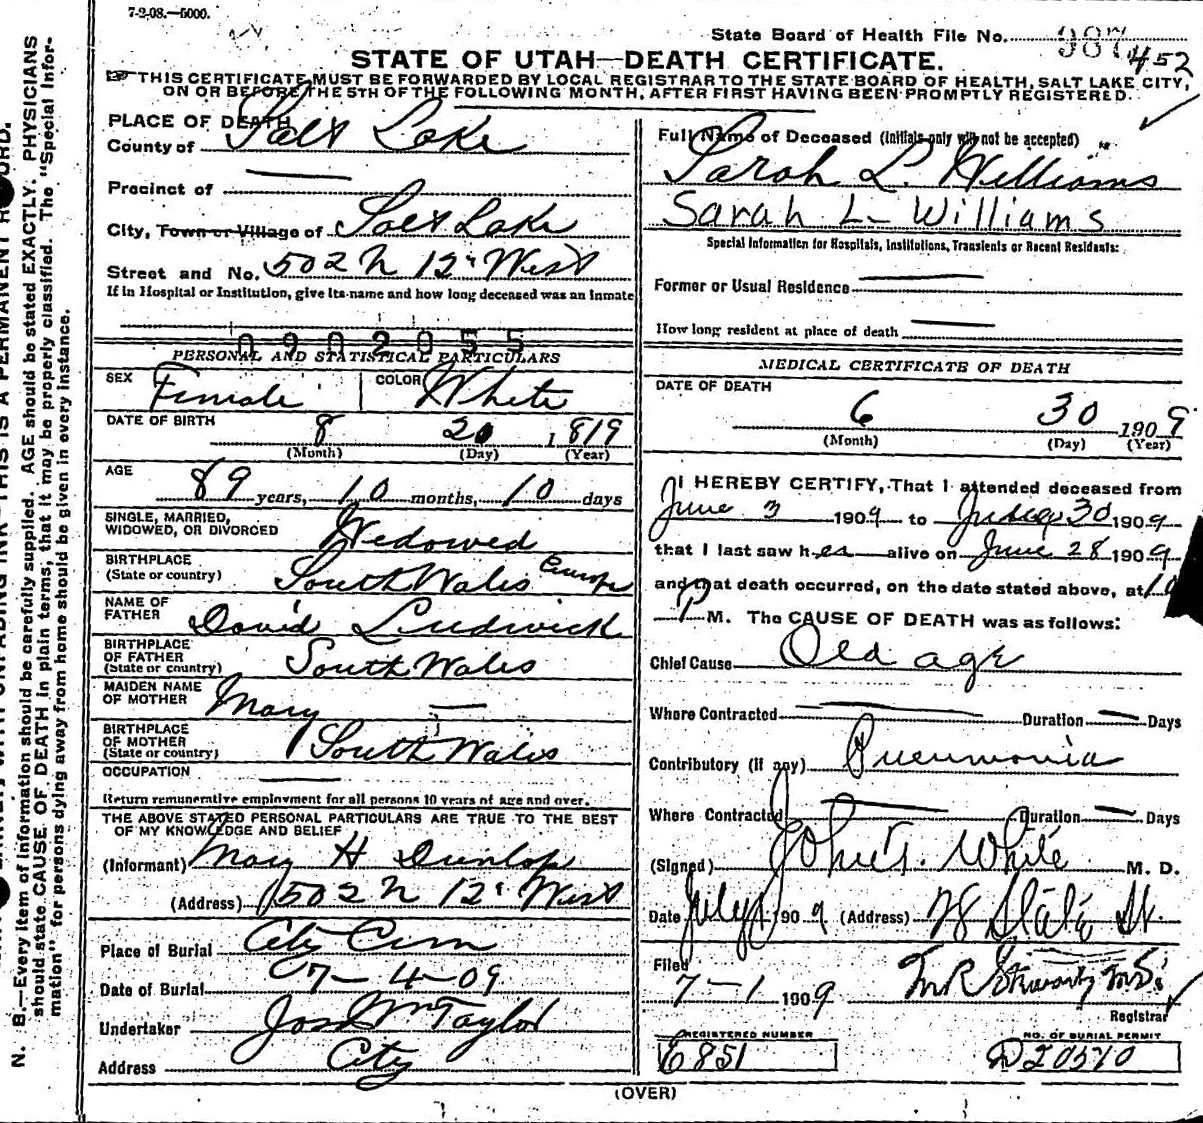 7-2-08.—5000.
State Board of Health File No. 987 452
STATE OF UTAH—DEATH CERTIFICATE.
☞THIS CERTIFICATE MUST BE FORWARDED BY LOCAL REGISTRAR TO THE STATE BOARD OF HEALTH, SALT LAKE CITY,
ON OR BEFORE THE 5TH OF THE FOLLOWING MONTH, AFTER FIRST HAVING BEEN PROMPTLY REGISTERED.
PLACE OF DEATH
County of Salt Lake
Precinct of
City, Town or Village of Salt Lake
Street and No. 502 N 12" West
If in Hospital or Institution, give its name and how long deceased was an inmate
0902055
PERSONAL AND STATISTICAL PARTICULARS
SEX Female COLOR White
DATE OF BIRTH 8 20 1819
(Month) (Day) (Year)
AGE 89 years, 10 months, 10 days
SINGLE, MARRIED,
WIDOWED, OR DIVORCED Wedowed
BIRTHPLACE
(State or country) South Wales Europe
NAME OF
FATHER David Ludwick
BIRTHPLACE
OF FATHER
(State or country) South Wales
MAIDEN NAME
OF MOTHER Mary —
BIRTHPLACE
OF MOTHER
(State or country) South Wales
OCCUPATION —
Return remunerative employment for all persons 10 years of age and over.
THE ABOVE STATED PERSONAL PARTICULARS ARE TRUE TO THE BEST
OF MY KNOWLEDGE AND BELIEF
(Informant) Mary H Dunlop
(Address) 502 N 12" West
Place of Burial City Cem
Date of Burial 7-4-09
Undertaker Jos Wm Taylor
Address City
Full Name of Deceased (initials only will not be accepted)
Sarah L. Williams
Sarah L- Williams
Special Information for Hospitals, Institutions, Transients or Recent Residents:
Former or Usual Residence —
How long resident at place of death —
MEDICAL CERTIFICATE OF DEATH
DATE OF DEATH
6 30 1909
(Month) (Day) (Year)
I HEREBY CERTIFY, That I attended deceased from
June 3 1909 to June 30 1909
that I last saw her alive on June 28 1909
and that death occurred, on the date stated above, at 10
P M. The CAUSE OF DEATH was as follows:
Chief Cause Old age
Where Contracted — Duration — Days
Contributory (if any) Pneumonia
Where Contracted — Duration — Days
(Signed) John T. White M. D.
Date July 1 1909 (Address) State St.
Filed
7-1 1909
Registrar
REGISTERED NUMBER
E851
NO. OF BURIAL PERMIT
D20570
(OVER)
N. B.—Every item of information should be carefully supplied. AGE should be stated EXACTLY. PHYSICIANS
should state CAUSE OF DEATH in plain terms, that it may be properly classified. The "Special Infor-
mation" for persons dying away from home should be given in every instance.